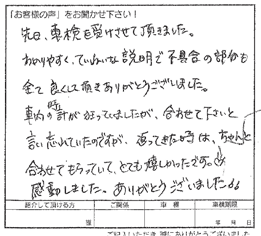 「お客様の声」をお聞かせ下さい!
先日、車検を受けさせて頂きました。
わかりやすく、ていねいな説明で不具合の部分も
全て良くして頂きありがとうございました。
車内の時計が狂っていましたが、合わせて下さいと
言い忘れていたのですが、返ってきた時は、ちゃんと
合わせてもらっていて、とても嬉しかったです。
感動しました。ありがとうございました
紹介して頂ける方 ご関係 車種 車検期限
様 年 月 日
ご記入いただき、誠にありがとうございました